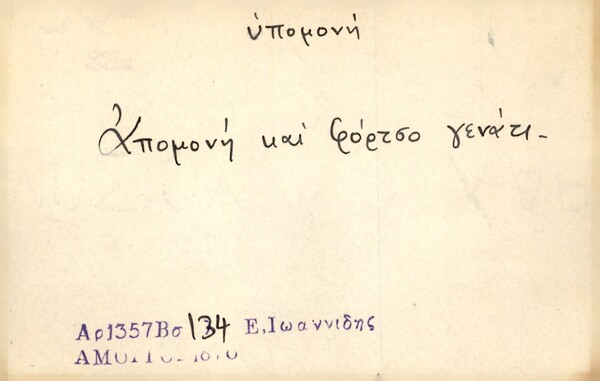 ὑπομονή
Ἀπομονή καί φόρτσο γενάτι-
Αρ1357Βσ134 Ε,Ιωαννιδης